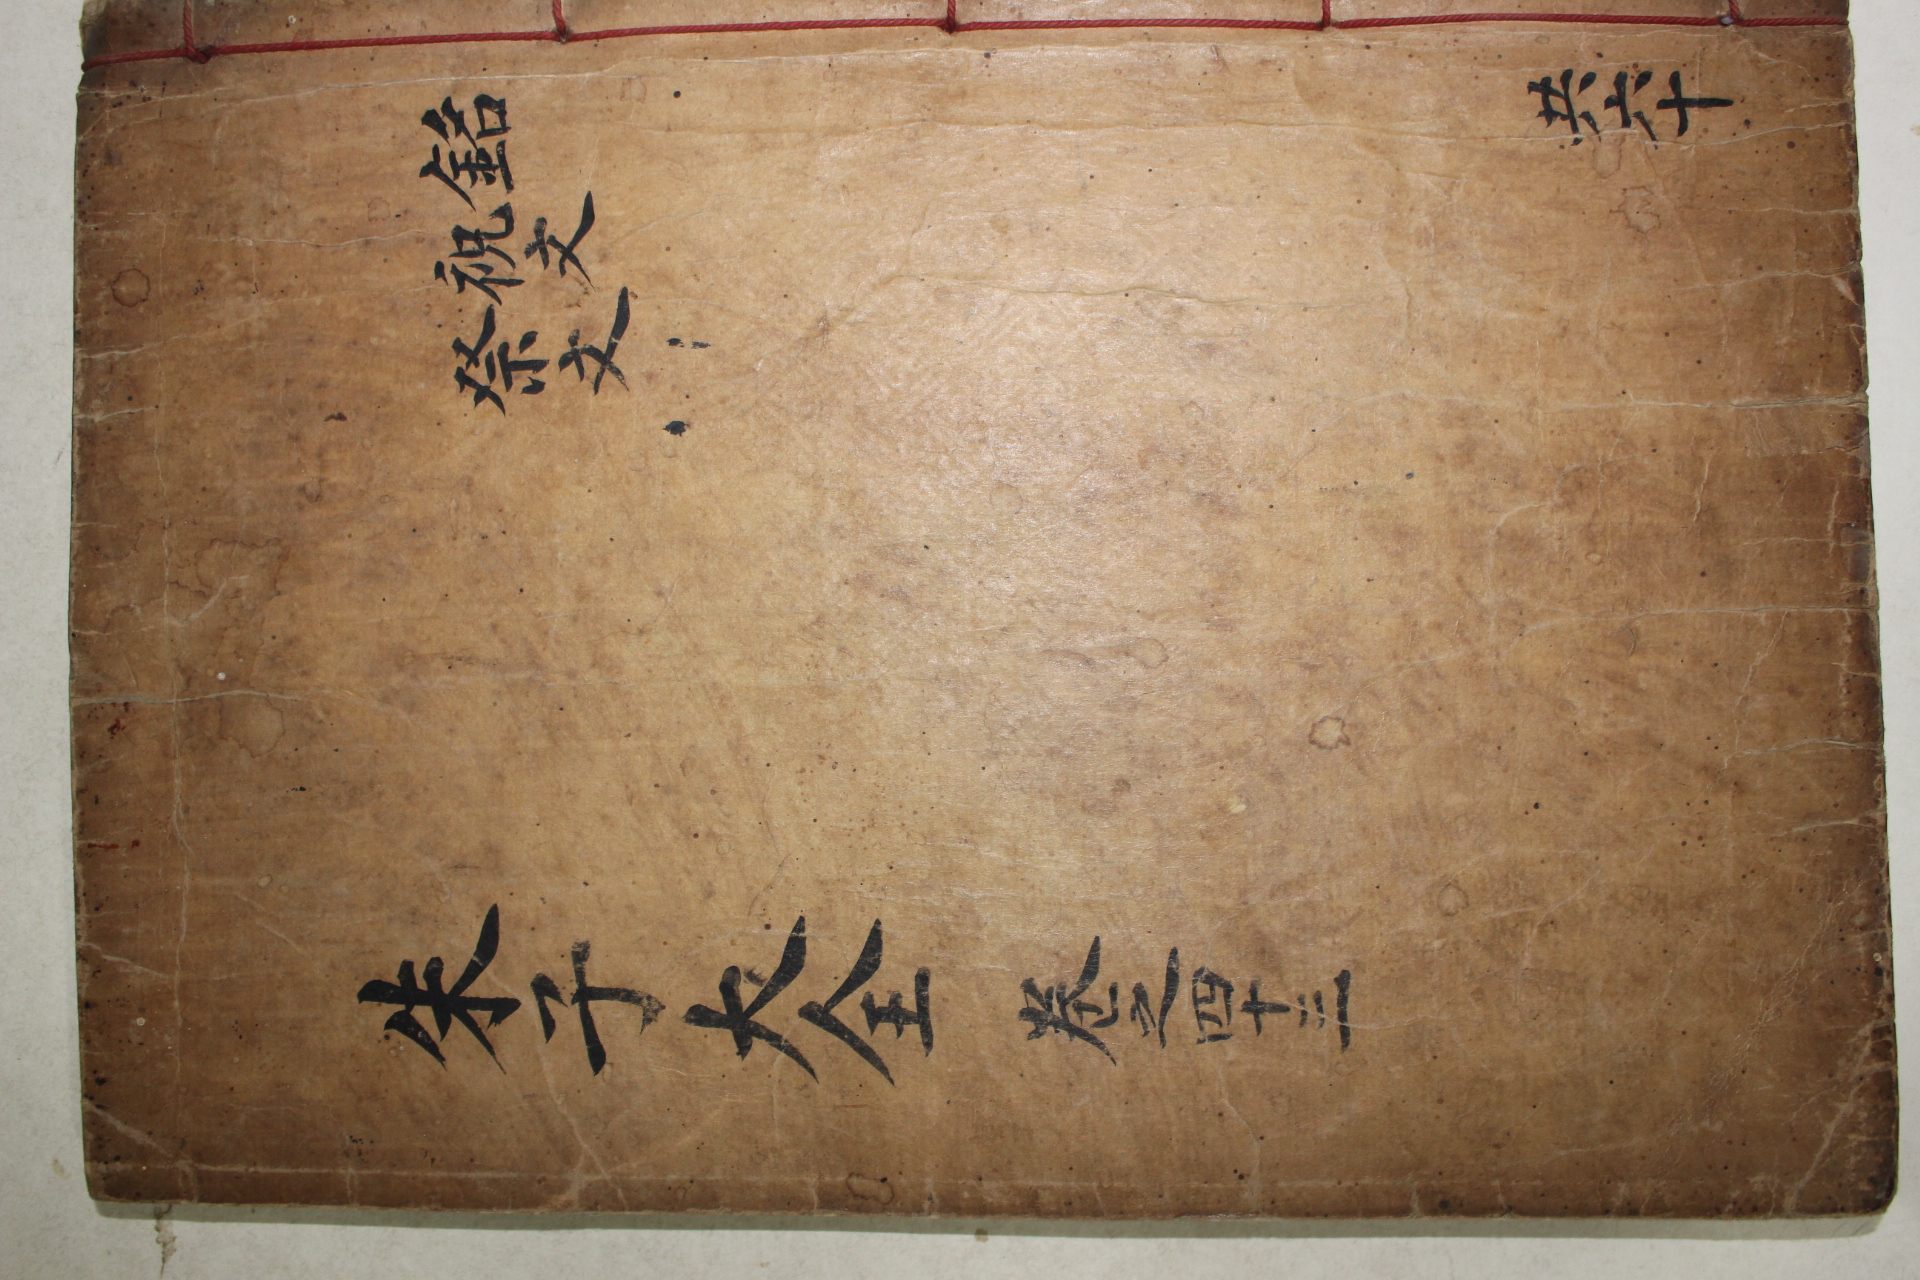 朱子大全 卷之四十三
銘
祝文
祭文
共六十